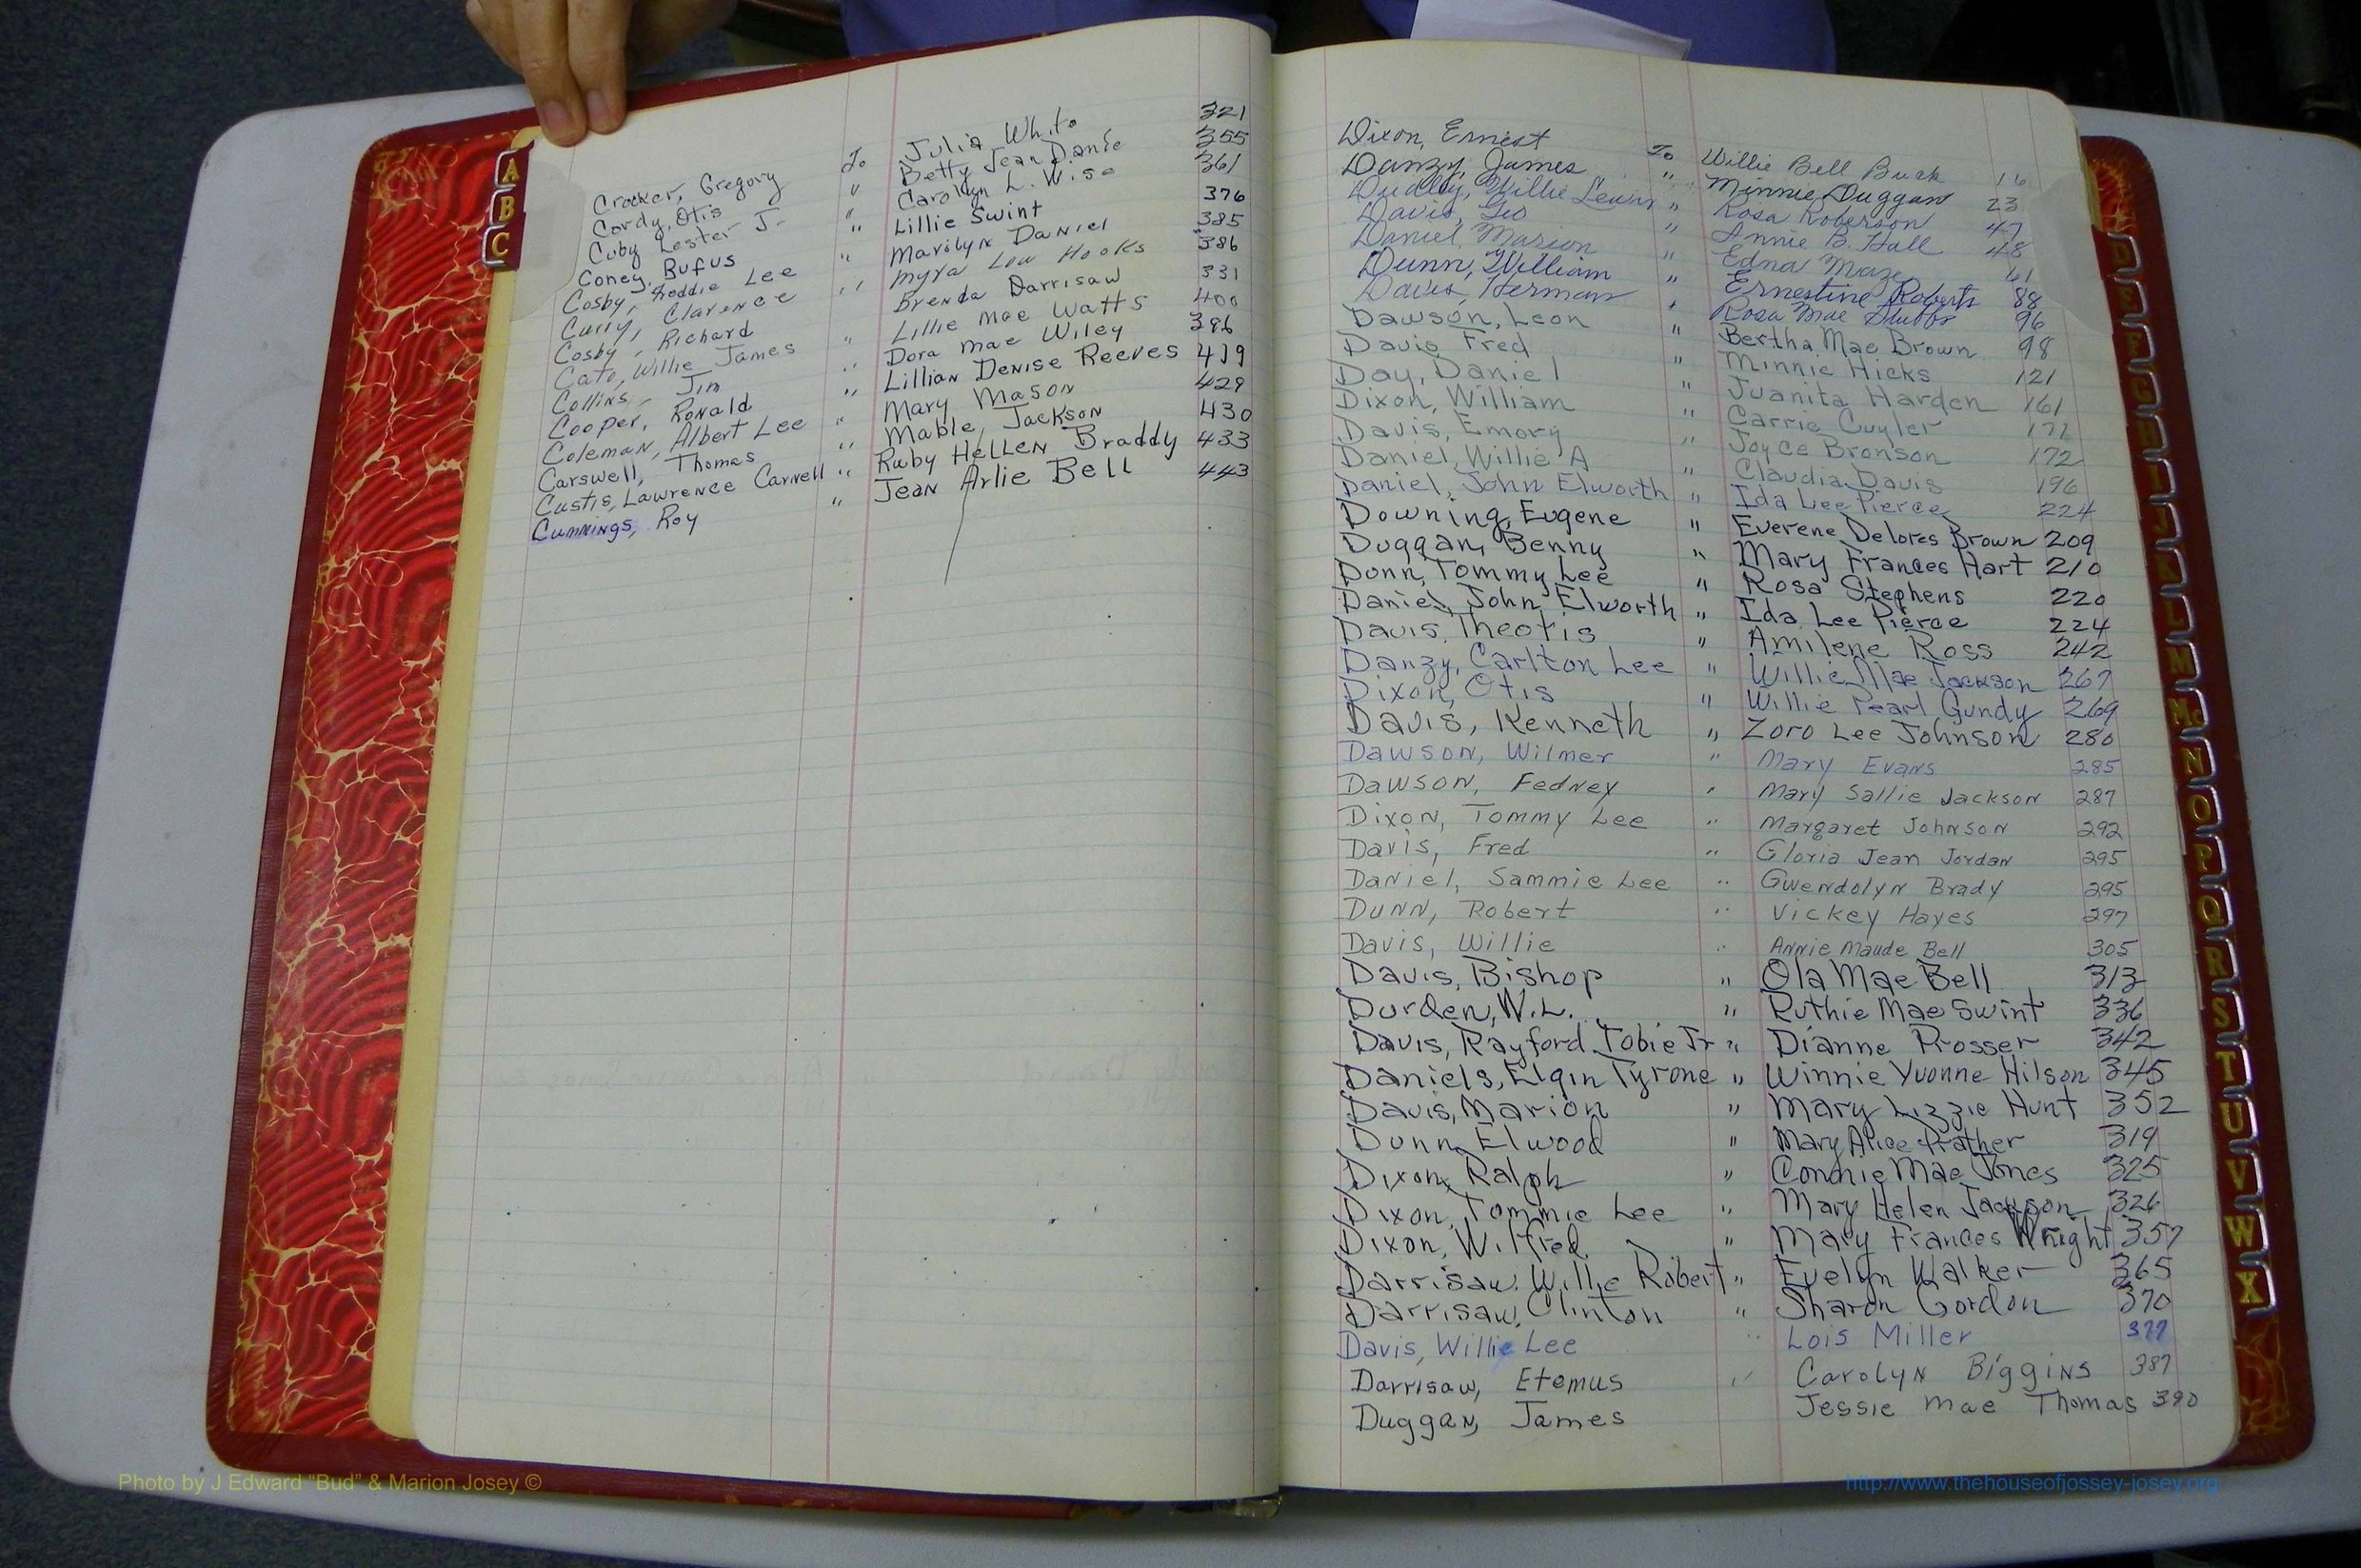 A
B
C
Crocker, Gregory To Julia White 321
Cordy, Otis " Betty Jean Danie 355
Cuby Lester J. " Carolyn L. Wise 361
Coney, Rufus " Lillie Swint 376
Cosby, Freddie Lee Marilyn Daniel 385
Curry, Clarence " Myra Lou Hooks 386
Cosby, Richard " Brenda Darrisaw 331
Cato, Willie James Lillie Mae Watts 400
Collins, Jim " Dora Mae Wiley 396
Cooper, Ronald " Lillian Denise Reeves 419
Coleman, Albert Lee " Mary Mason 429
Carswell, Thomas " Mable Jackson 430
Custis, Lawrence Carnell " Ruby Hellen Braddy 433
Cummings, Roy " Jean Arlie Bell 443
Dixon, Ernest To Willie Bell Buck 16
Danzy, James " Minnie Duggan 23
Dudley, Willie Lewis " Rosa Roberson 47
Davis, Geo " Annie B. Hall 48
Daniel, Marion " Edna Maze 61
Dunn, William " Ernestine Roberts 88
Davis, Herman " Rosa Mae Stubbs 96
Dawson, Leon " Bertha Mae Brown 98
Davis Fred " Minnie Hicks 121
Day, Daniel " Juanita Harden 161
Dixon, William " Carrie Cuyler 171
Davis, Emory " Joyce Bronson 172
Daniel, Willie A " Claudia Davis 196
Daniel, John Elworth " Ida Lee Pierce 224
Downing, Eugene " Everene Delores Brown 209
Duggan, Benny " Mary Frances Hart 210
Donn, Tommy Lee " Rosa Stephens 220
Daniel, John Elworth " Ida Lee Pierce 224
Davis, Theotis " Amilene Ross 242
Danzy, Carlton Lee " Willie Mae Jackson 267
Dixon, Otis " Willie Pearl Gundy 269
Davis, Kenneth " Zoro Lee Johnson 280
Dawson, Wilmer " Mary Evans 285
Dawson, Fedney " Mary Sallie Jackson 287
Dixon, Tommy Lee " Margaret Johnson 292
Davis, Fred " Gloria Jean Jordan 295
Daniel, Sammie Lee " Gwendolyn Brady 295
Dunn, Robert " Vickey Hayes 297
Davis, Willie " Annie Maude Bell 305
Davis, Bishop " Ola Mae Bell 313
Durden, W.L. " Ruthie Mae Swint 336
Davis, Rayford Tobie Jr " Dianne Prosser 342
Daniels, Elgin Tyrone " Winnie Yvonne Hilson 345
Davis, Marion " Mary Lizzie Hunt 352
Dunn, Elwood " Mary Alice Prather 319
Dixon, Ralph " Connie Mae Jones 325
Dixon, Tommie Lee " Mary Helen Jackson 326
Dixon, Wilfred " Mary Frances Wright 357
Darrisaw, Willie Robert " Evelyn Walker 365
Darrisaw, Clinton " Sharon Gordon 370
Davis, Willie Lee " Lois Miller 377
Darrisaw, Etomus " Carolyn Biggins 387
Duggan, James Jessie Mae Thomas 390
D
E
F
G
H
I
J
K
L
M
Mc
N
O
P
Q
R
S
T
U
V
W
X
Photo by J Edward "Bud" & Marion Josey ©
http://www.thehouseofjossey-josey.org